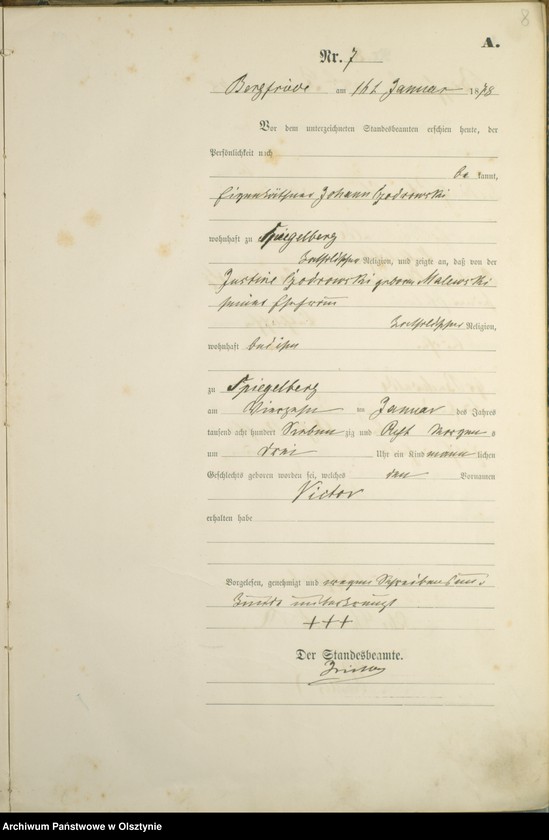 8
A.
Nr. 7
Bergfriede am 16t Januar 1878
Vor dem unterzeichneten Standesbeamten erschien heute, der
Persönlichkeit nach
be kannt,
Eigenkäthner Johann
wohnhaft zu Spiegelberg
katholischer Religion, und zeigte an, daß von der
Justine geborne Malewski
seiner Ehefrau
katholischer Religion,
wohnhaft bei ihm
zu Spiegelberg
am Vierzehn ten Januar des Jahres
tausend acht hundert Sieben zig und Acht Morgens
um drei Uhr ein Kind männ lichen
Geschlechts geboren worden sei, welches den Vornamen
Victor
erhalten habe
Vorgelesen, genehmigt und wegen Schreibensun-
kunde unterkreuzt
+++
Der Standesbeamte.
Archiwum Państwowe w Olsztynie